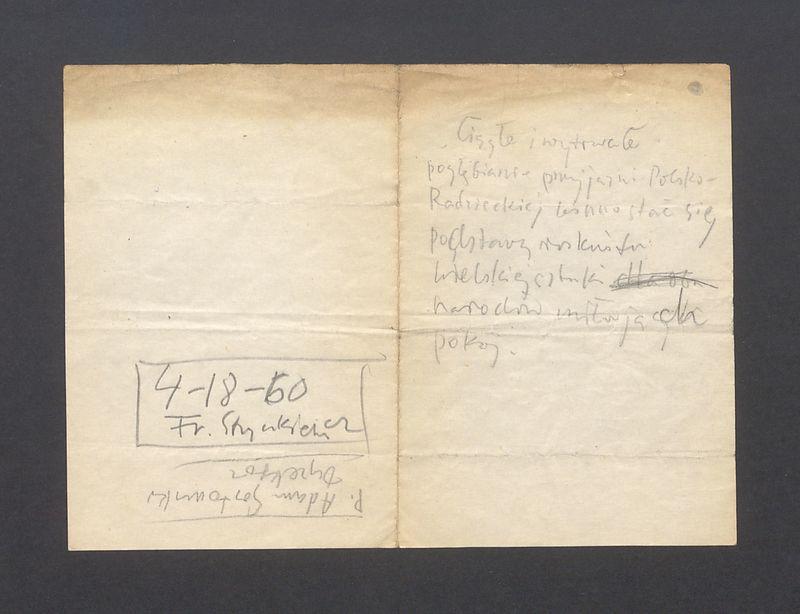 4-18-60
Fr. Strynkiewicz
P. Adam
Dyrektor
Ciągłe i wytrwałe
pogłębianie przyjaźni Polsko-
Radzieckiej winno stać się
podstawą rozkwitu
wielkiej sztuki
narodów miłujących
pokój.